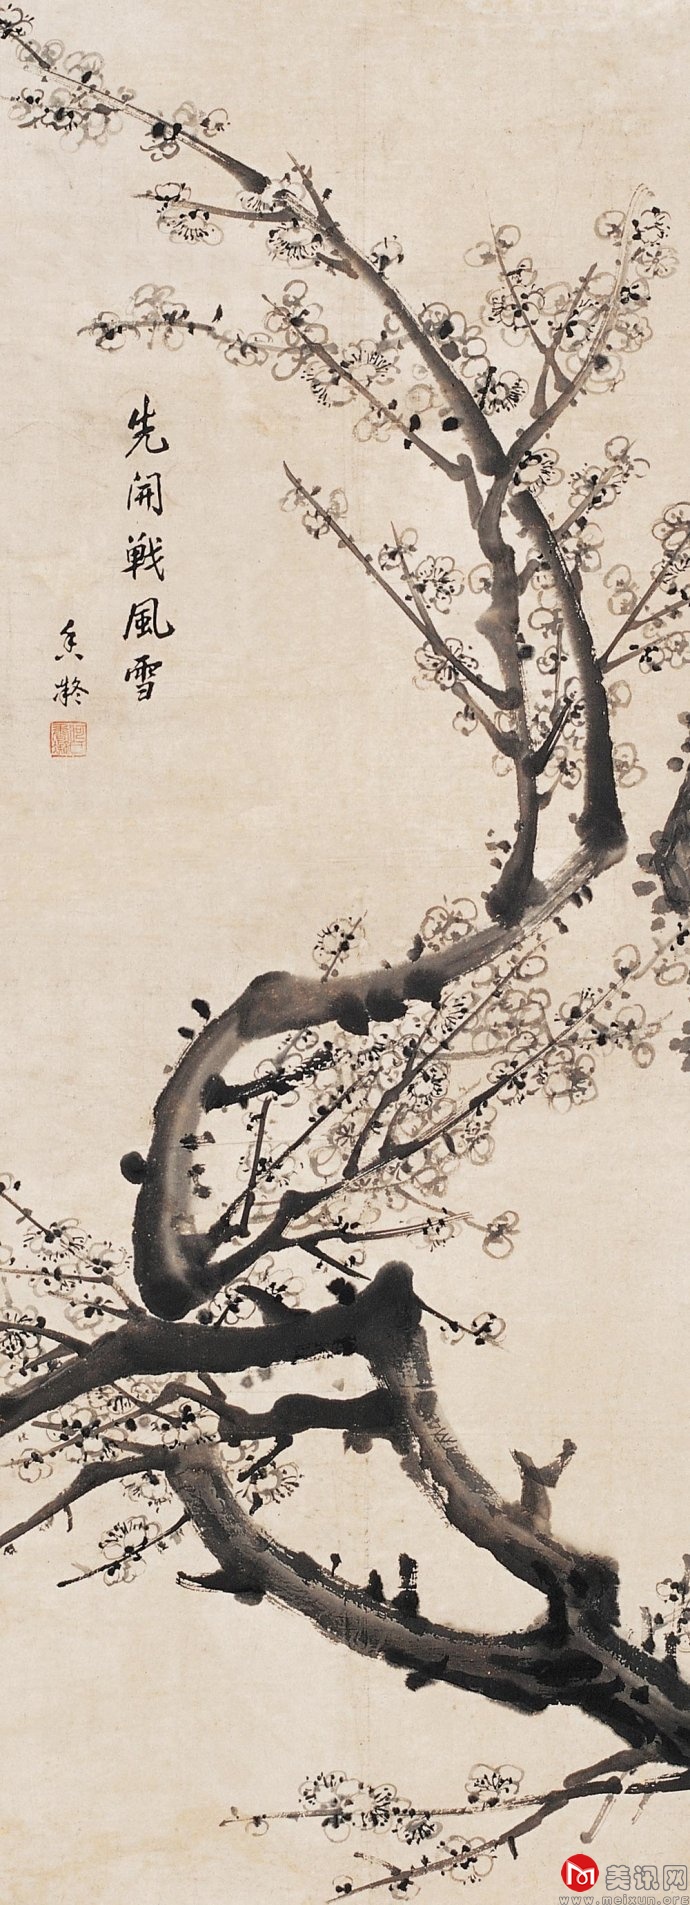 先開戰風雪
香凝
美讯网
www.meixun.org